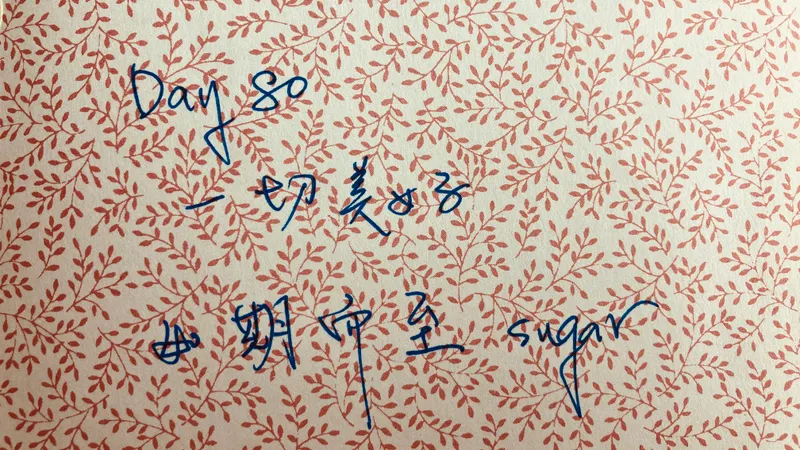 Day 80
一切美好
如期而至 sugar